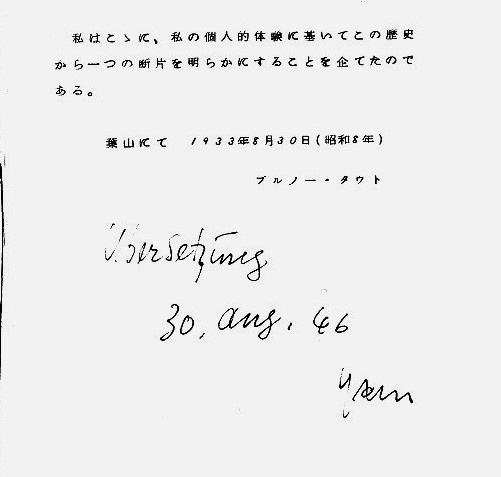 私はこゝに、私の個人的体験に基いてこの歴史
から一つの断片を明らかにすることを企てたので
ある。
葉山にて 1933年8月30日(昭和8年)
ブルノー・タウト
Übersetzung
30. Aug. 46